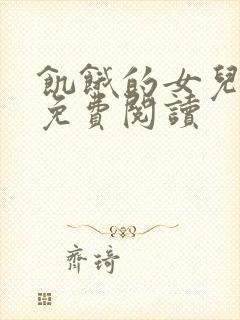 飢餓的女兒
免費閱讀
齊琦